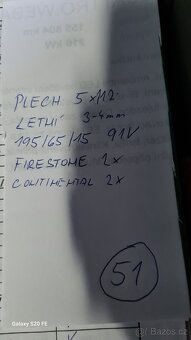 155 804 km
210 kW
PLECH 5x112
LETNÍ 3-4mm
195/65/15 91V
FIRESTONE 2x
CONTINENTAL 2x
51
Galaxy S20 FE
Bazoš.cz